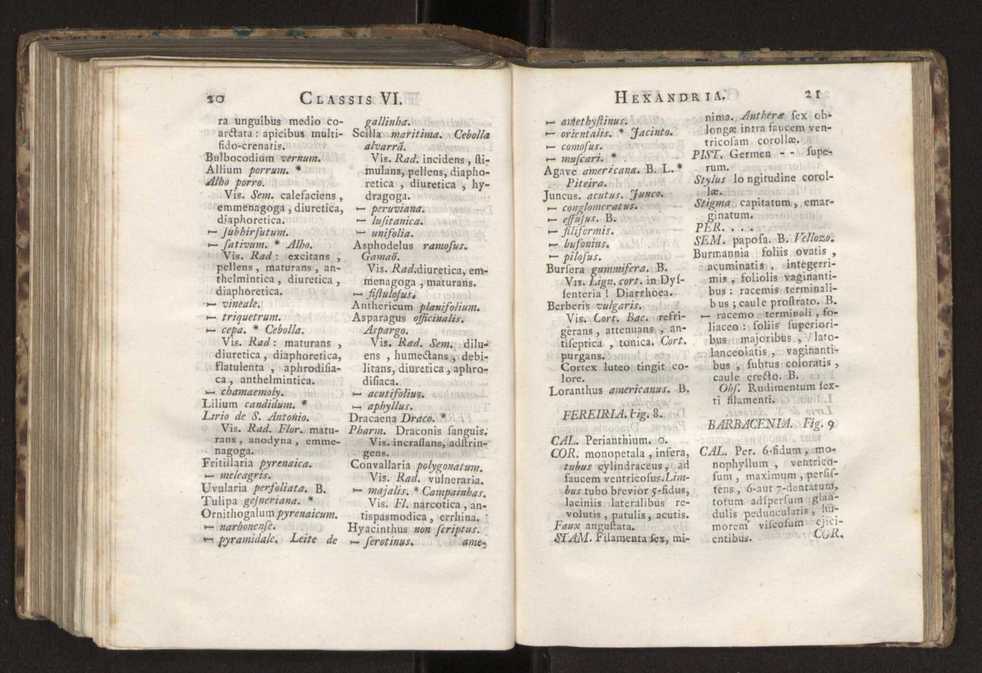 20 CLASSIS VI.
ra unguibus medio co-
arctata : apicibus multi-
fido-crenatis.
Bulbocodium vernum.
Allium porrum. *
Alho porro.
Vis. Sem. calefaciens,
emmenagoga, diuretica,
diaphoretica.
— subhirsutum.
— sativum. * Alho.
Vis. Rad : excitans ,
pellens , maturans , an-
thelmintica , diuretica ,
diaphoretica.
— vineale.
— triquetrum.
— cepa. * Cebolla.
Vis. Rad : maturans ,
diuretica , diaphoretica,
flatulenta , aphrodisia-
ca , anthelmintica.
— chamaemoly.
Lilium candidum. *
Lirio de S. Antonio.
Vis. Rad. Flor. matu-
rans , anodyna , emme-
nagoga.
Fritillaria pyrenaica.
— meleagris.
Uvularia perfoliata. B.
Tulipa gesneriana. *
Ornithogalum pyrenaicum.
— narbonense.
— pyramidale. Leite de
gallinha.
Scilla maritima. Cebolla
alvarrã.
Vis. Rad. incidens , sti-
mulans, pellens, diapho-
retica , diuretica , hy-
dragoga.
— peruviana.
— lusitanica.
— unifolia.
Asphodelus ramosus.
Gamaõ.
Vis. Rad. diuretica, em-
menagoga , maturans.
— fistulosus.
Anthericum planifolium.
Asparagus officinalis.
Aspargo.
Vis. Rad. Sem. dilu-
ens , humectans , debi-
litans, diuretica , aphro-
disiaca.
— acutifolius.
— aphyllus.
Dracaena Draco. *
Pharm. Draconis sanguis.
Vis. incrassans, adstrin-
gens.
Convallaria polygonatum.
Vis. Rad. vulneraria.
— majalis. * Campainhas.
Vis. Fl. narcotica , an-
tispasmodica , errhina.
Hyacinthus non scriptus.
— serotinus. ame-
HEXANDRIA. 21
— amethystinus.
— orientalis. * Jacinto.
— comosus.
— muscari. *
Agave americana. B. L. *
Piteira.
Juncus. acutus. Junco.
— conglomeratus.
— effusus. B.
— filiformis.
— bufonius.
— pilosus.
Bursera gummifera. B.
Vis. Lign. cort. in Dys-
senteria ! Diarrhoea.
Berberis vulgaris.
Vis. Cort. Bac. refri-
gerans , attenuans , an-
tiseptica , tonica. Cort.
purgans.
Cortex luteo tingit co-
lore.
Loranthus americanus. B.
FEREIRIA. Fig. 8.
CAL. Perianthium. 0.
COR. monopetala , infera,
tubus cylindraceus, ad
faucem ventricosus. Lim-
bus tubo brevior 5-fidus,
laciniis lateralibus re-
volutis , patulis, acutis.
Faux angustata.
STAM. Filamenta sex, mi-
nima. Antheræ sex ob-
longæ intra faucem ven-
tricosam corollæ.
PIST. Germen - - supe-
rum.
Stylus longitudine corol-
læ.
Stigma capitatum , emar-
ginatum.
PER. . . .
SEM. paposa. B. Vellozo.
Burmannia foliis ovatis ,
acuminatis , integerri-
mis , foliolis vaginanti-
bus : racemis terminali-
bus ; caule prostrato. B.
— racemo terminali , fo-
liaceo : foliis superiori-
bus majoribus , lato-
lanceolatis , vaginanti-
bus , subtus coloratis ,
caule erecto. B.
Obs. Rudimentum sex-
ti filamenti.
BARBACENIA. Fig. 9
CAL. Per. 6-fidum , mo-
nophyllum , ventrico-
sum , maximum , persis-
tens , 6-aut 7-dentatum,
totum adspersum glan-
dulis pedunculatis , hu-
morem viscosum ejici-
entibus. COR.